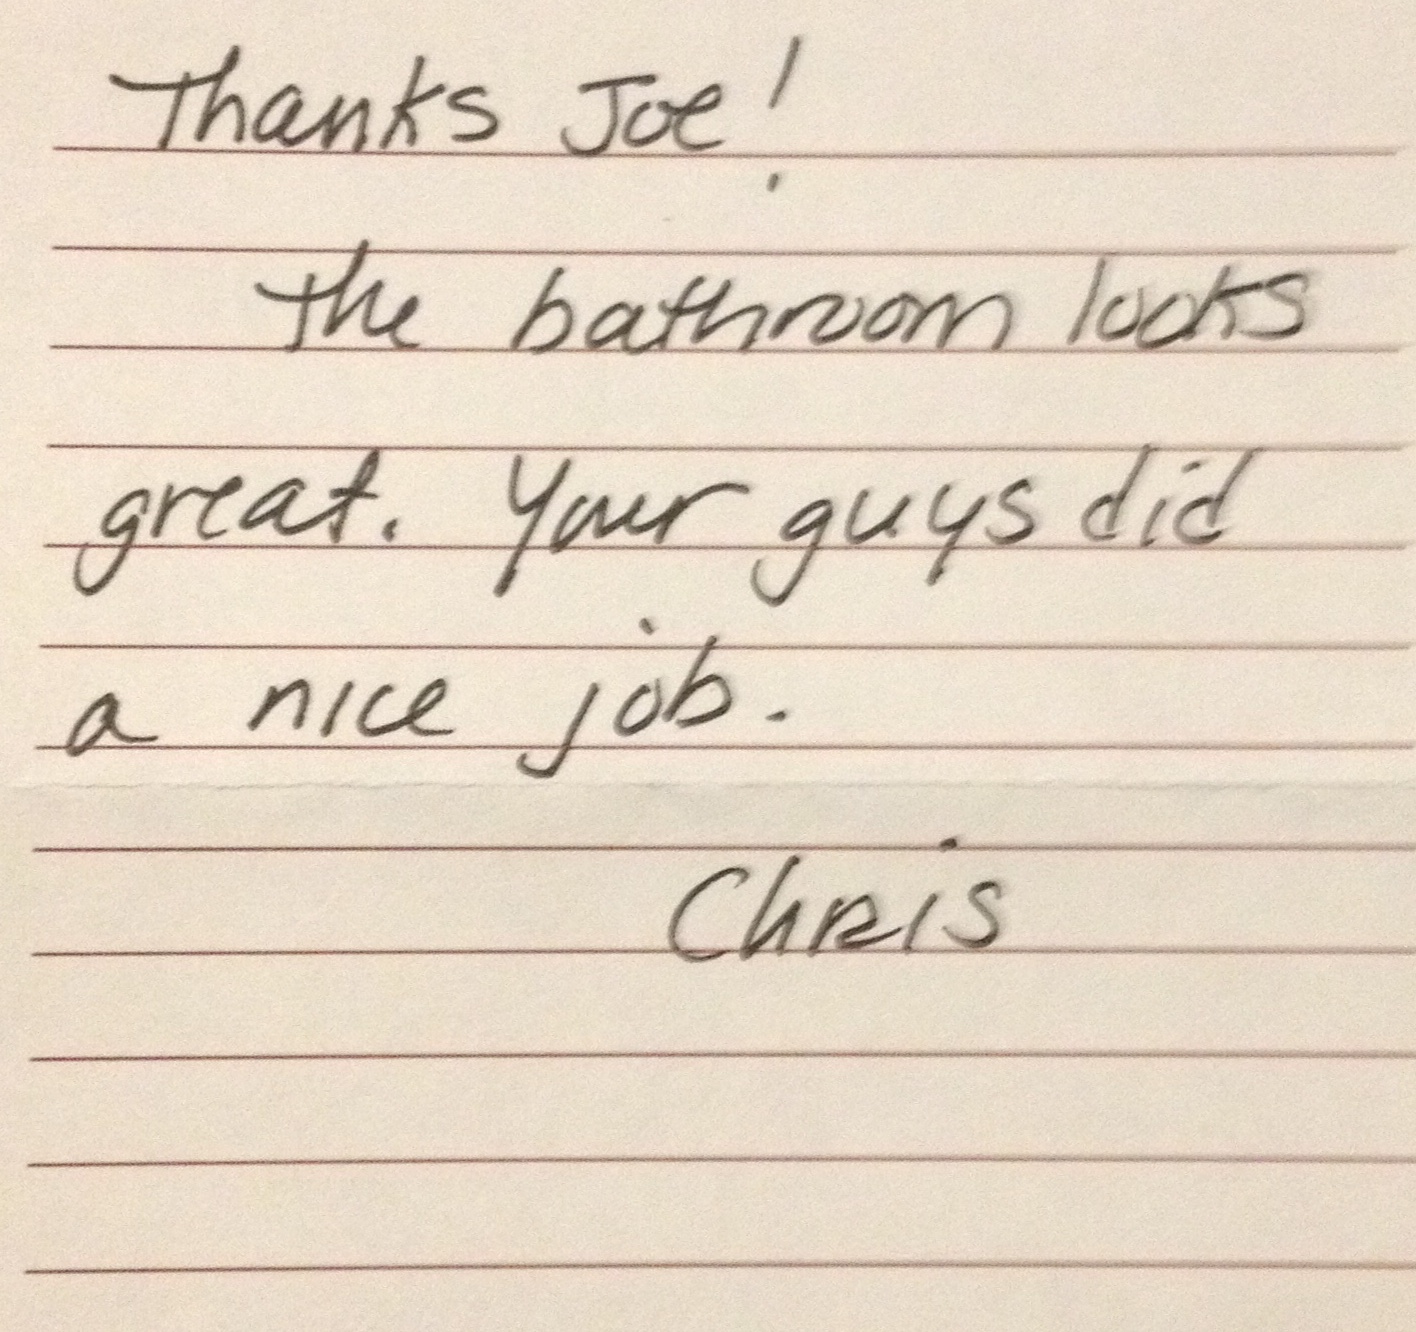 Thanks Joe!
The bathroom looks
great. Your guys did
a nice job.
Chris